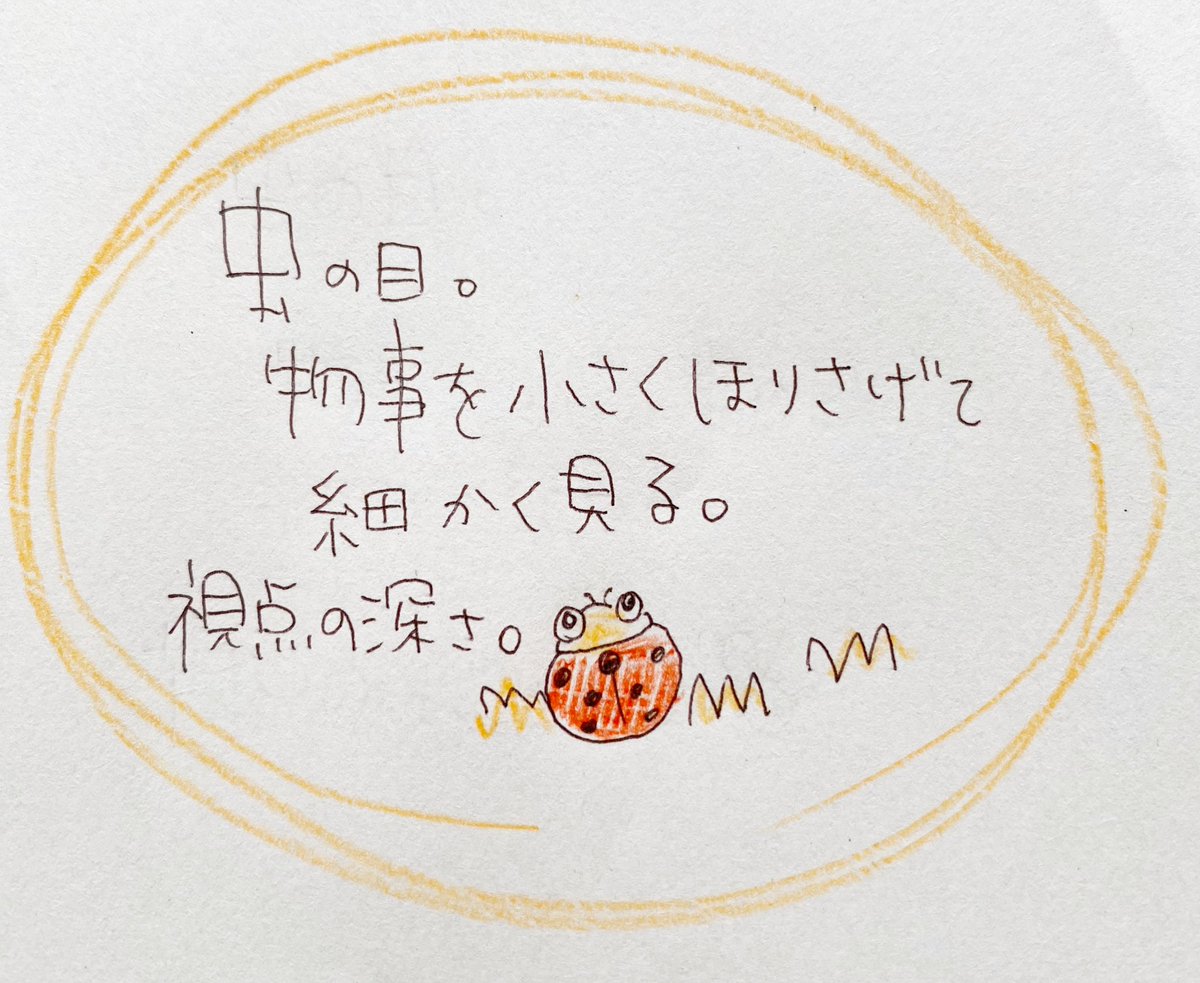 虫の目。
物事を小さくほりさげて
細かく見る。
視点の深さ。